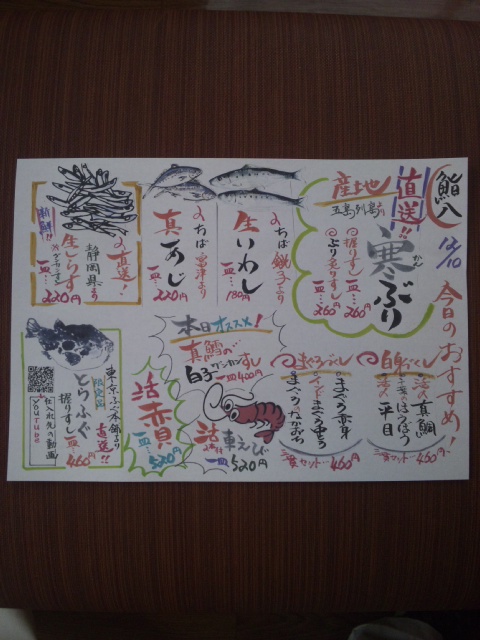 鮨八
12/10
今日のおすすめ!
産地直送!!
五島列島
寒ぶり
かん
握りすし 一皿…260円
ぶり炙りすし 一皿…260円
ちば銚子より
生いわし
一皿…180円
ちば富津より
真あじ
一皿…220円
新鮮!!
直送!
静岡県より
生しらす
一皿…220円
白身づくし
活〆真鯛
ほうぼう
平目
三貫セット…460円
まぐろづくし
まぐろ赤身
インドまぐろ中とろ
まぐろのなかおち
三貫セット…460円
本日オススメ!
真鱈の
白子
すし
一皿400円
活車えび
一皿520円
活赤貝
一皿…520円
東京ふぐ本舗より
直送!!
限定品
とらふぐ
握りすし
一皿…460円
仕入れ先の動画
YouTube